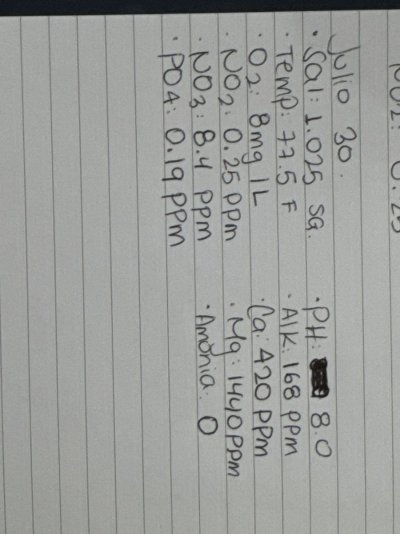 NO2: 0.25
Julio 30.
· Sal: 1.025 SG.
· Temp: 77.5 F
· O2: 8mg/L
· NO2: 0.25 ppm
· NO3: 8.4 ppm
· PO4: 0.19 ppm
· PH: 8.0
· Alk: 168 ppm
· Ca: 420 ppm
· Mg: 1440 ppm
· Amonia: 0